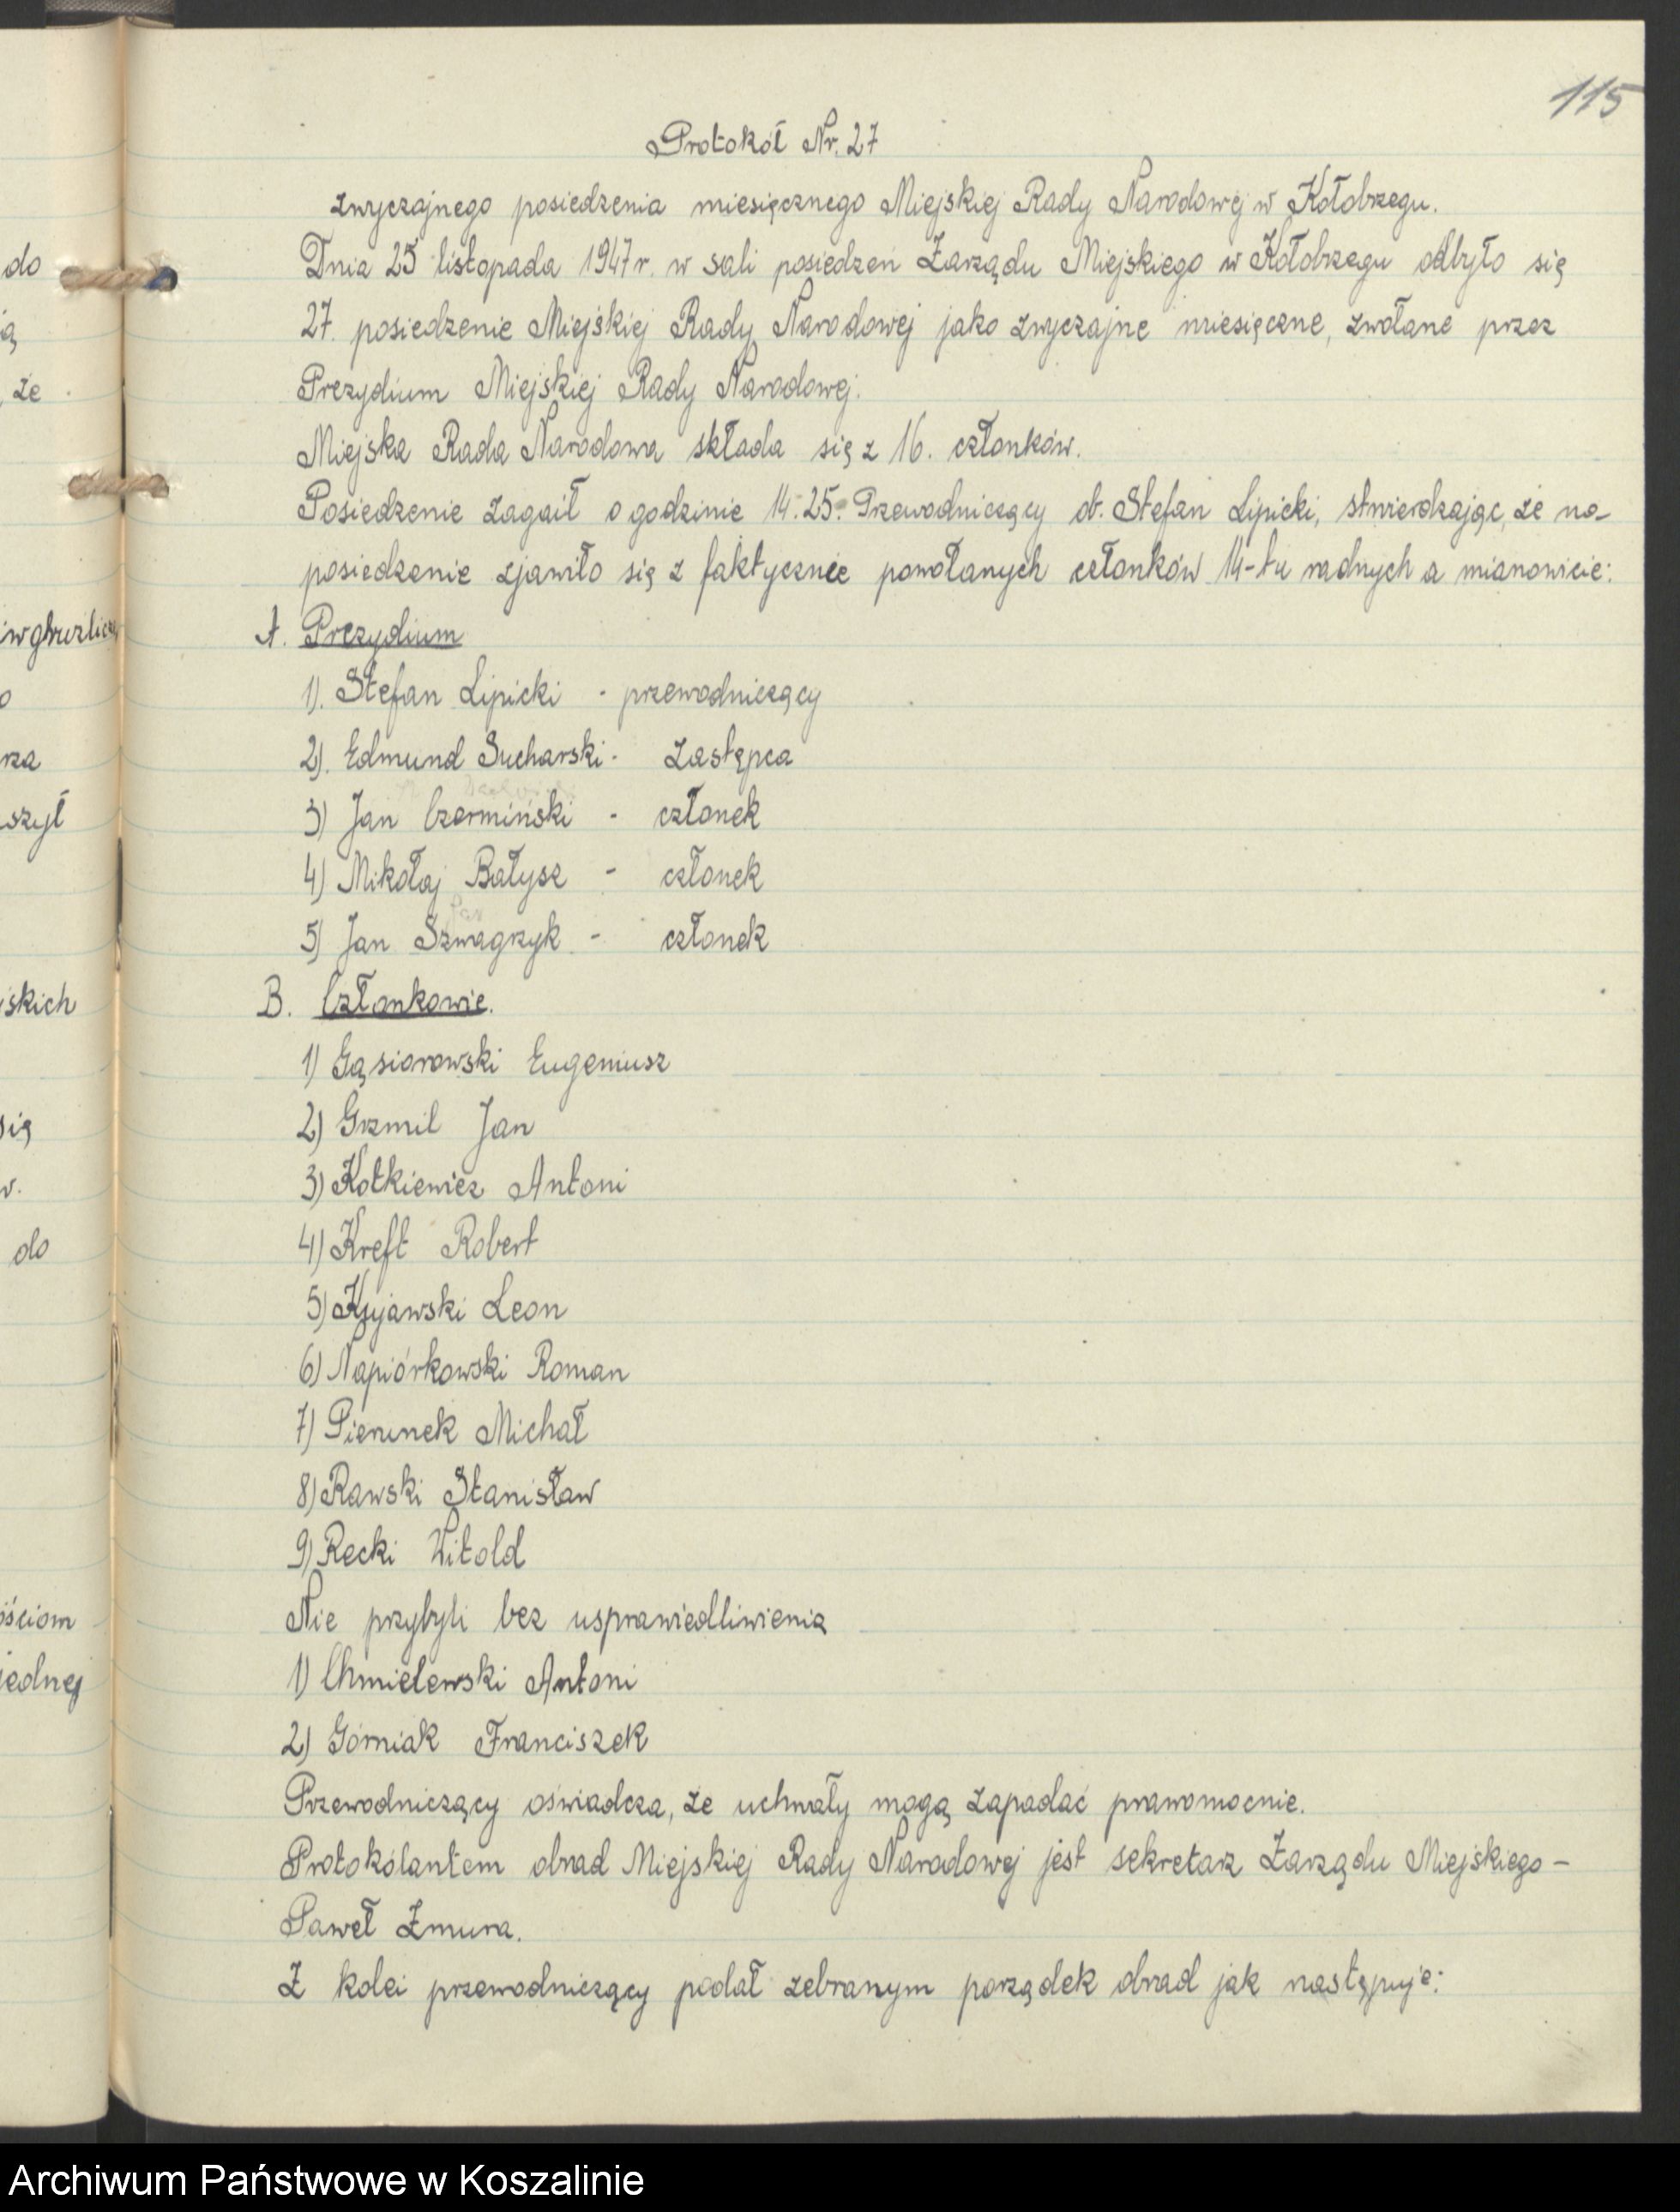 115
Protokół Nr. 27
zwyczajnego posiedzenia miesięcznego Miejskiej Rady Narodowej w Kołobrzegu.
Dnia 25 listopada 1947 r. w sali posiedzeń Zarządu Miejskiego w Kołobrzegu odbyło się
27. posiedzenie Miejskiej Rady Narodowej jako zwyczajne miesięczne, zwołane przez
Prezydium Miejskiej Rady Narodowej.
Miejska Rada Narodowa składa się z 16. członków.
Posiedzenie zagaił o godzinie 14.25. Przewodniczący ob. Stefan Lipicki, stwierdzając, że na-
posiedzenie zjawiło się z faktycznie powołanych członków 14-tu radnych a mianowicie:
A. Prezydium
1). Stefan Lipicki - przewodniczący
2). Edmund Sucharski - zastępca
3) Jan Czermiński - członek
4) Mikołaj Bałysz - członek
5) Jan Szwagrzyk - członek
B. Członkowie.
1) Gąsiorowski Eugeniusz
2) Grzmil Jan
3) Kotkiewicz Antoni
4) Kreft Robert
5) Kujawski Leon
6) Napiórkowski Roman
7) Pierunek Michał
8) Rawski Stanisław
9) Recki Witold
Nie przybyli bez usprawiedliwienia
1) Chmielewski Antoni
2) Górniak Franciszek
Przewodniczący oświadcza, że uchwały mogą zapadać prawomocnie.
Protokólantem obrad Miejskiej Rady Narodowej jest sekretarz Zarządu Miejskiego -
Paweł Zmura.
Z kolei przewodniczący podał zebranym porządek obrad jak następuje:
do
że
szył
skich
się
do
ściom
jednej
Archiwum Państwowe w Koszalinie